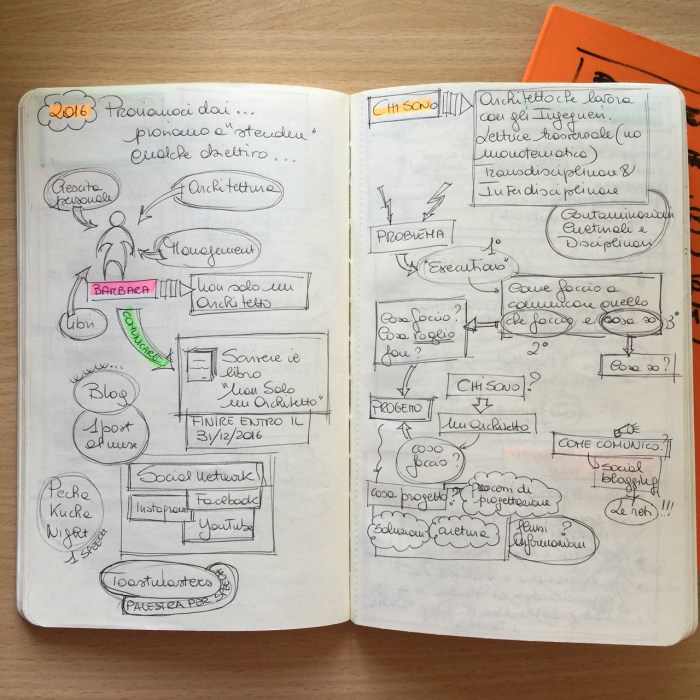 2016 Proviamoci dai...
proviamo a "stendere"
qualche obiettivo...
Crescita
personale
Architettura
Management
BARBARA
Non solo un
Architetto
libri
COMUNICARE
Scrivere il
libro
"Non Solo
un Architetto"
FINIRE ENTRO IL
31/12/2016
Blog
1 post
al mese
Social Network
Instagram
Facebook
YouTube
Pecha
Kucha
Night
1 SPEECH
Toastmasters
PALESTRA PER
CHI SONO
Architetto che lavora
con gli Ingegneri.
Lettura trasversale (no
monotematica)
Transdisciplinare &
Interdisciplinare
Contaminazioni
Culturali e
Disciplinari
PROBLEMA
1°
"Execution"
Come faccio a
comunicare quello
che faccio e cosa so
3°
2°
Cosa faccio?
Cosa voglio
fare?
Cosa so?
CHI SONO?
PROGETTO
un Architetto
cosa
faccio?
COME COMUNICO?
Social
blogging
Le reti !!!
cosa progetto?
Processi di
progettazione
Soluzioni
flussi ?
informazioni